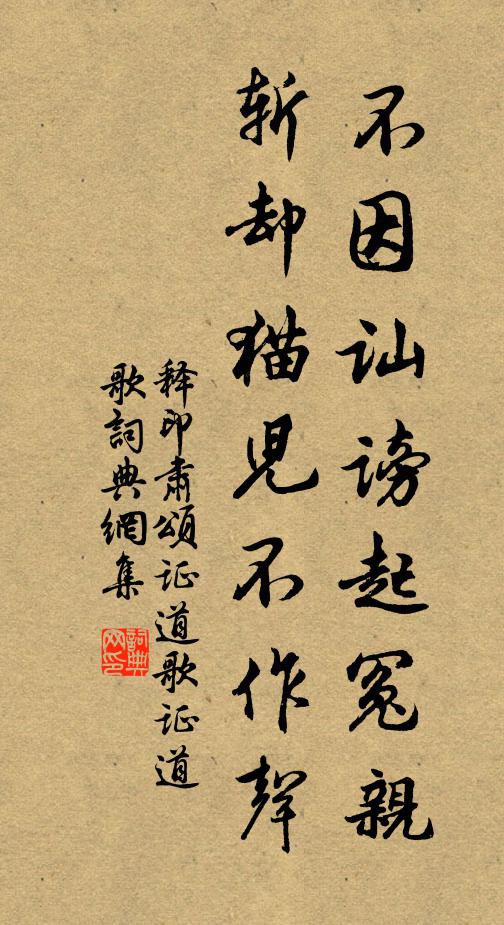 不因讪謗起冤親
斬却猫兒不作聲
释印肅頌证道歌证道
歌詞典網集
詞典
网印